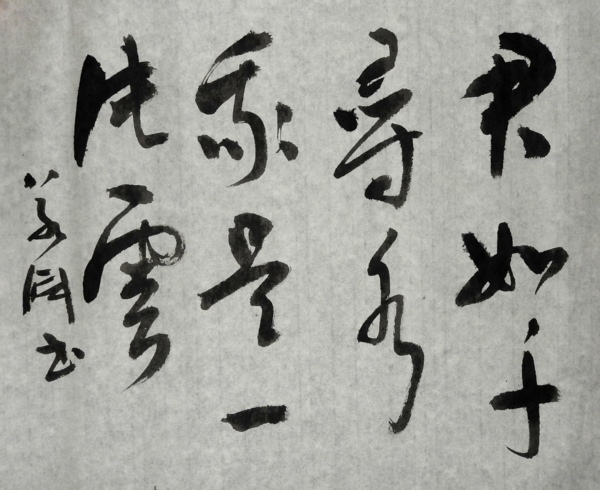 君如千
尋水
我是一
片雲
书